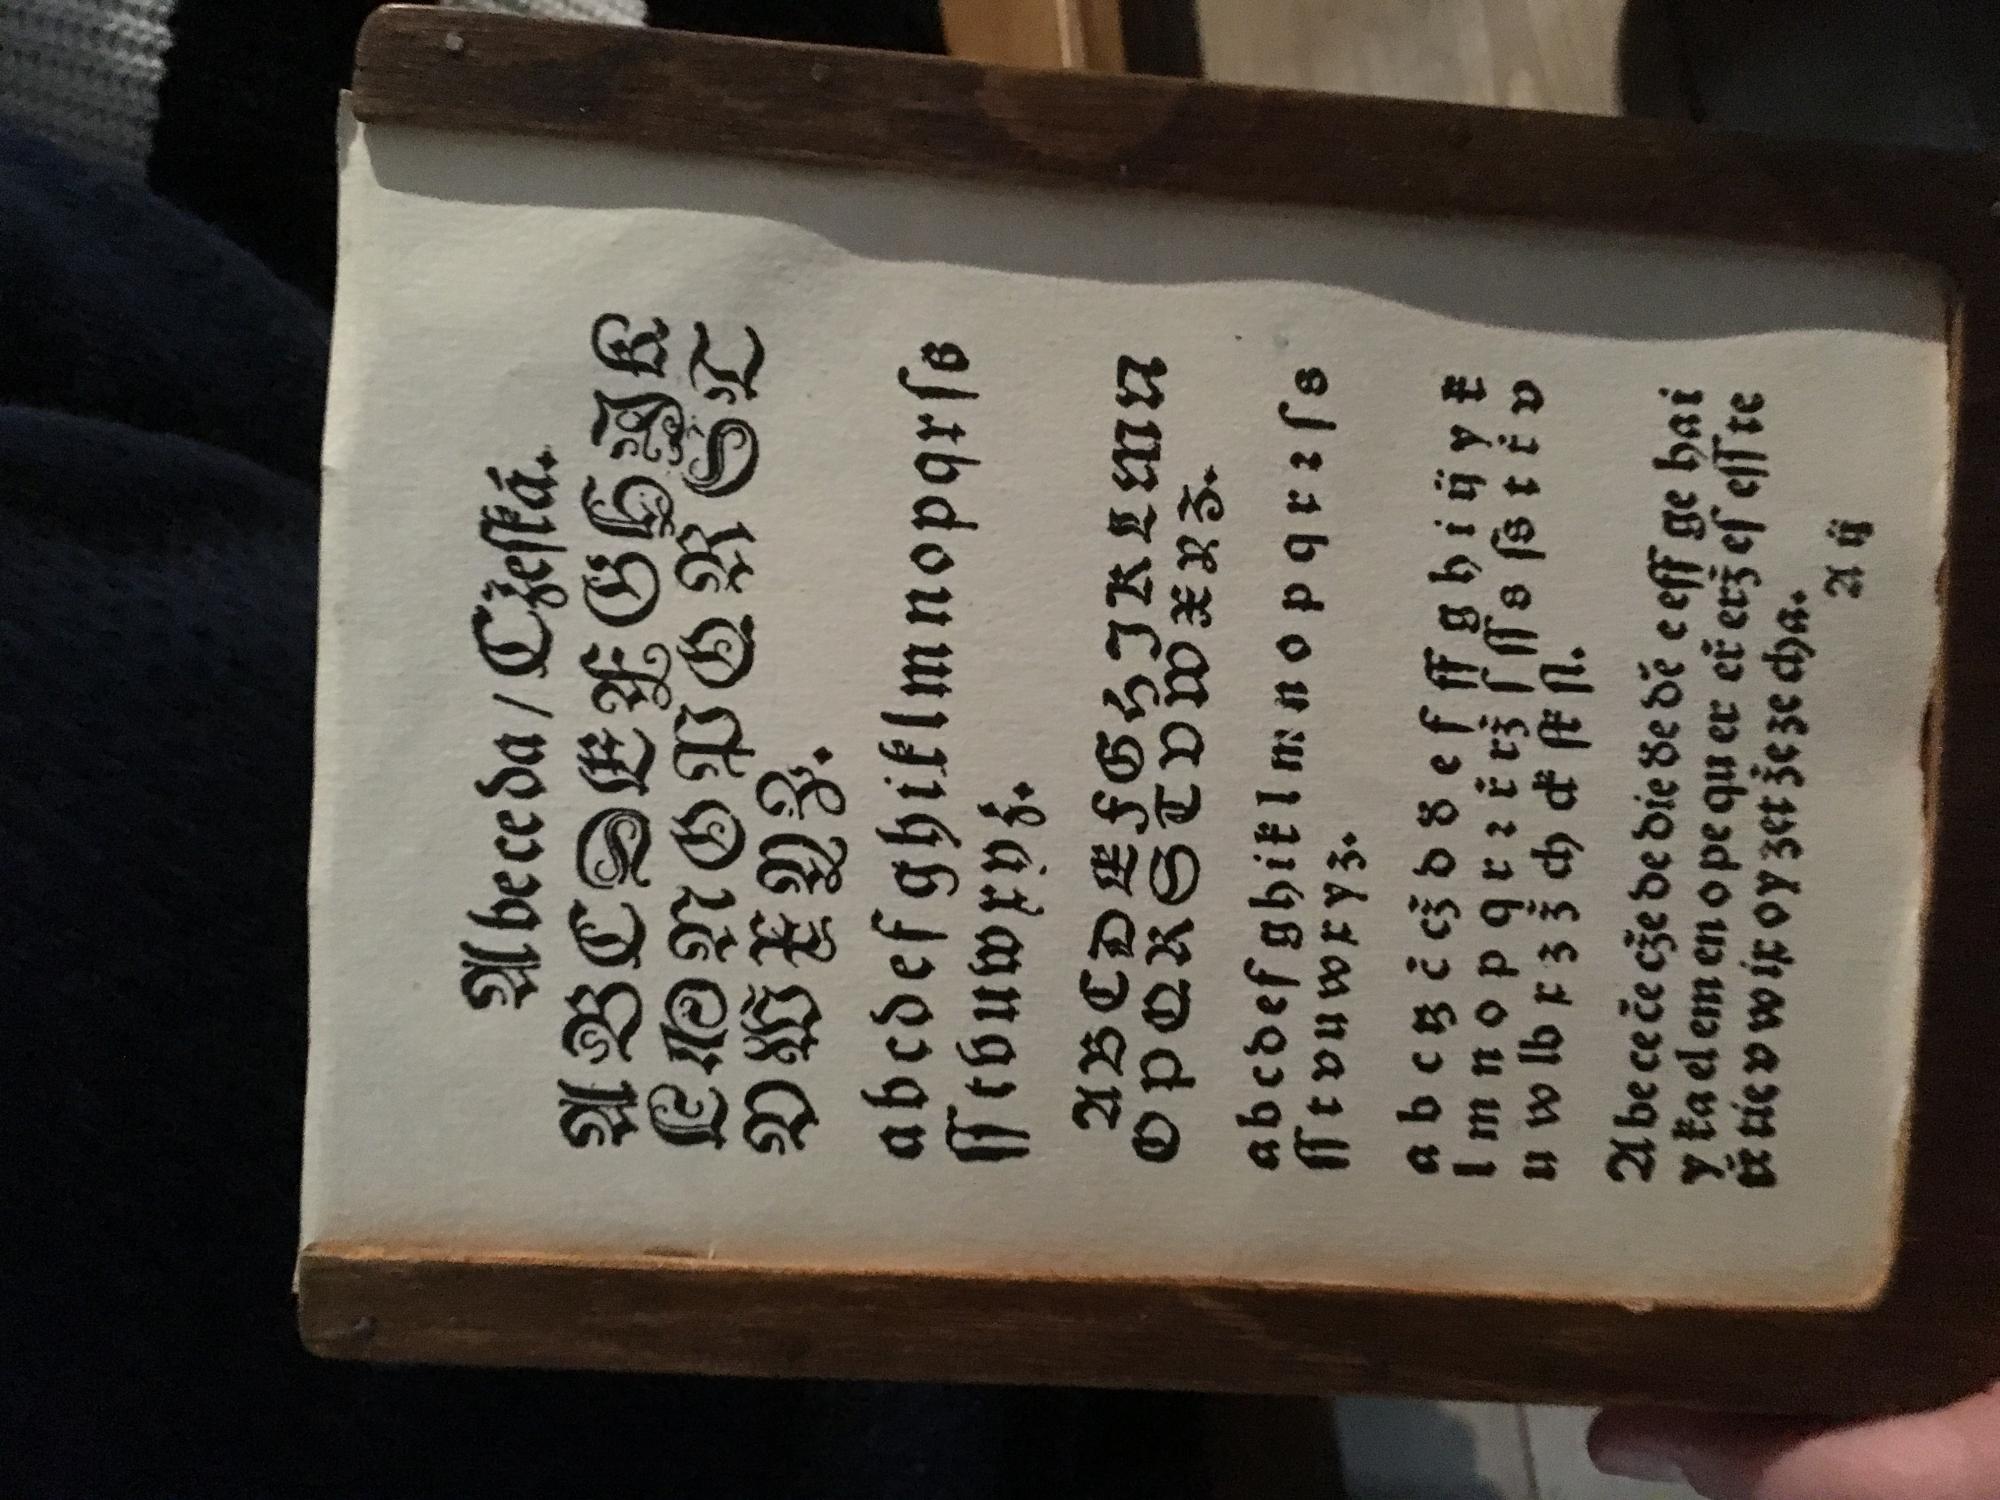 Abeceda / Cżeſká.
A B C D E F G H J K
L M N O P Q R S T
V W X Y Z.
a b c d e f g h i k l m n o p q r ſ s
ſſ t v u w x y z.
A B C D E F G H J K L M N
O P Q R S T V W X Y Z.
a b c d e f g h i k l m n o p q r ꝛ ſ s
ſſ t v u w x y z.
a b c ċ cż d e f ff g h i ij y k
l m n o p q r ꝛ ṙ rż ſ ſſ s ſs t ṫ v
u w lb x z ż ch ck ſk ſl.
A be ce ċe cże de die e eff ge ha i
y ka el em en o pe qu er eṙ erż eſ eſſ te
v w ix oy zet że ze cha.
A ij